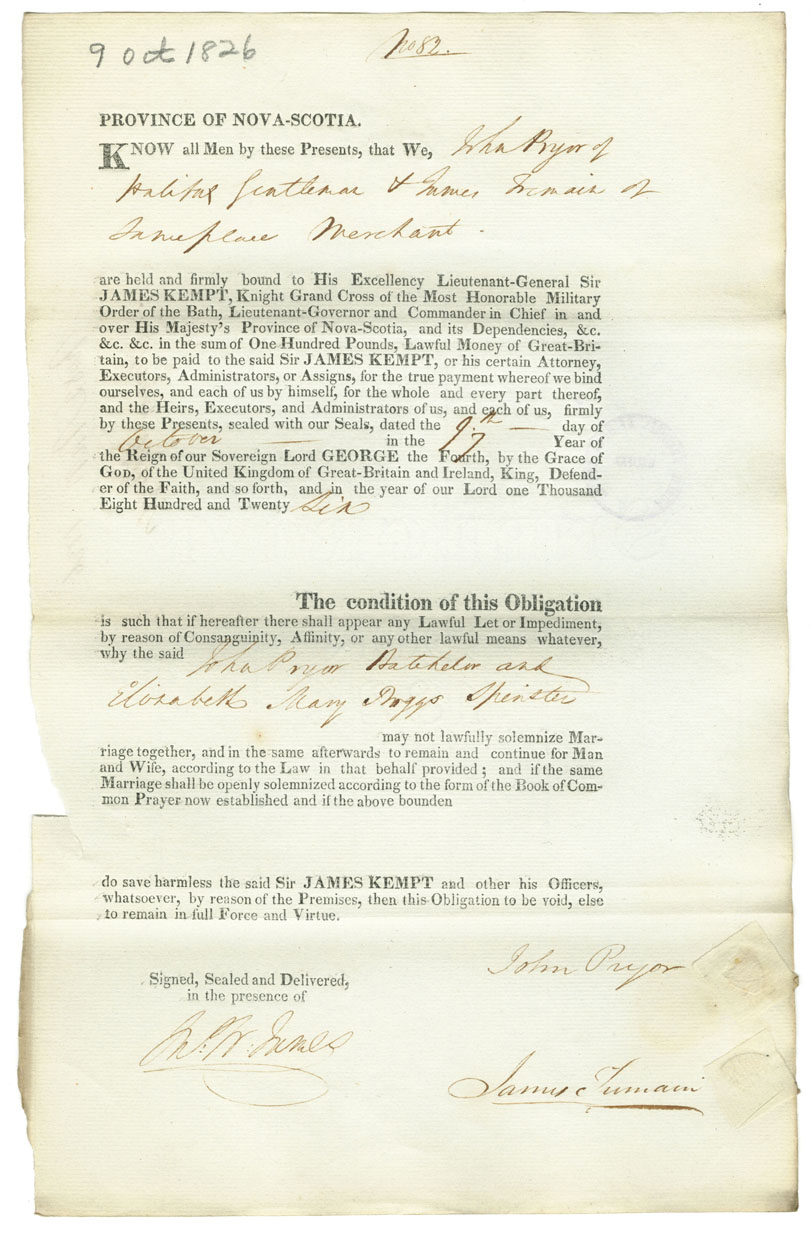 9 Oct 1826
No 82.
PROVINCE OF NOVA-SCOTIA.
KNOW all Men by these Presents, that We, John Pryor of
Halifax Gentleman & James Tremain of
Same place Merchant.
are held and firmly bound to His Excellency Lieutenant-General Sir
JAMES KEMPT, Knight Grand Cross of the Most Honorable Military
Order of the Bath, Lieutenant-Governor and Commander in Chief in and
over His Majesty's Province of Nova-Scotia, and its Dependencies, &c.
&c. &c. in the sum of One Hundred Pounds, Lawful Money of Great-Bri-
tain, to be paid to the said Sir JAMES KEMPT, or his certain Attorney,
Executors, Administrators, or Assigns, for the true payment whereof we bind
ourselves, and each of us by himself, for the whole and every part thereof,
and the Heirs, Executors, and Administrators of us, and each of us, firmly
by these Presents, sealed with our Seals, dated the 9th — day of
October — in the 7 Year of
the Reign of our Sovereign Lord GEORGE the Fourth, by the Grace of
GOD, of the United Kingdom of Great-Britain and Ireland, King, Defend-
er of the Faith, and so forth, and in the year of our Lord one Thousand
Eight Hundred and Twenty Six
The condition of this Obligation
is such that if hereafter there shall appear any Lawful Let or Impediment,
by reason of Consanguinity, Affinity, or any other lawful means whatever,
why the said John Pryor Batchelor and
Elizabeth Mary Boggs Spinster
may not lawfully solemnize Mar-
riage together, and in the same afterwards to remain and continue for Man
and Wife, according to the Law in that behalf provided; and if the same
Marriage shall be openly solemnized according to the form of the Book of Com-
mon Prayer now established and if the above bounden
do save harmless the said Sir JAMES KEMPT and other his Officers,
whatsoever, by reason of the Premises, then this Obligation to be void, else
to remain in full Force and Virtue.
John Pryor
Signed, Sealed and Delivered,
in the presence of
James Tremain